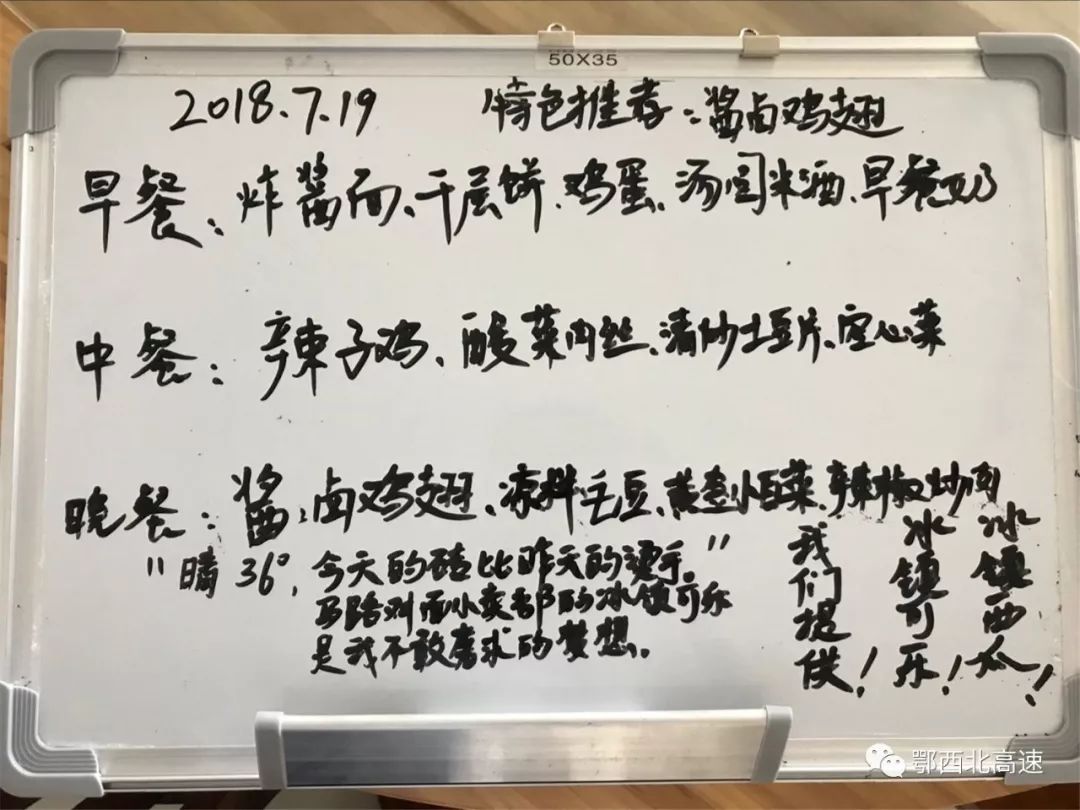 50X35
2018.7.19 特色推荐：酱卤鸡翅
早餐：炸酱面、千层饼、鸡蛋、汤圆米酒、早餐奶
中餐：辣子鸡、酸菜肉丝、清炒土豆片、空心菜
晚餐：酱卤鸡翅、凉拌毛豆、黄卷小白菜、辣椒炒肉
"晴36°，今天的砖比昨天的烫手。"
马路对面小卖部的冰镇可乐
是我不敢奢求的梦想。
我们提供！
冰镇可乐！
冰镇西瓜！
鄂西北高速